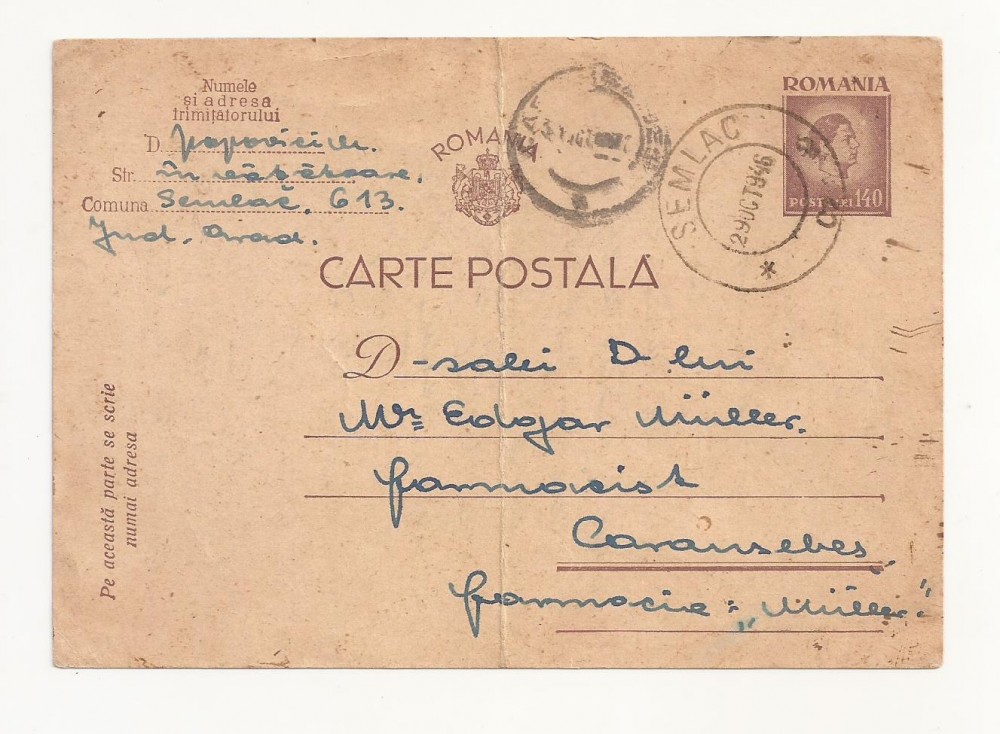 Numele
și adresa
trimițătorului
D. Popovici M.
Str. în vărsătoare,
Comuna Semlac, 613.
Jud. Arad.
ROMANIA
SEMLAC
29 OCT 1946
ROMANIA
POSTA LEI 140
CARTE POSTALĂ
D-sale D lui
Mr Edgar Müller.
farmacist
Caransebeș
farmacia: „Müller."
Pe această parte se scrie
numai adresa